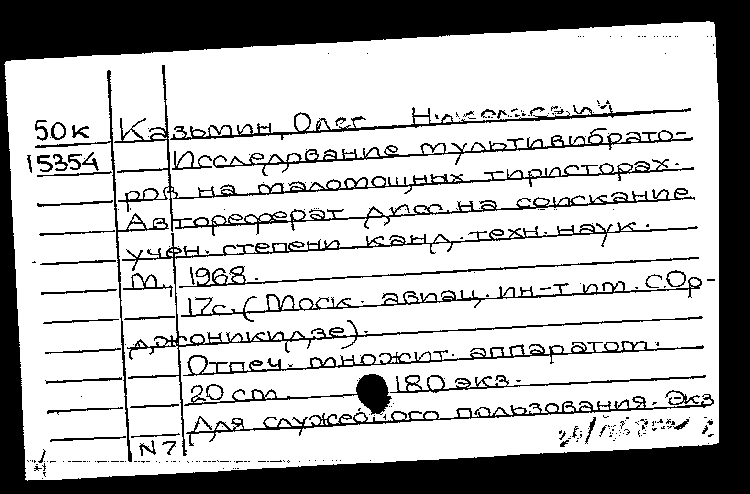 50к Казьмин, Олег Николаевич
15354 Исследование мультивибрато-
ров на маломощных тиристорах.
Автореферат дисс. на соискание
учен. степени канд. техн. наук.
М., 1968.
17с. (Моск. авиац. ин-т им. С.Ор-
джоникидзе).
Отпеч. множит. аппаратом.
20 см. 180 экз.
Для служебного пользования. Экз
N 7